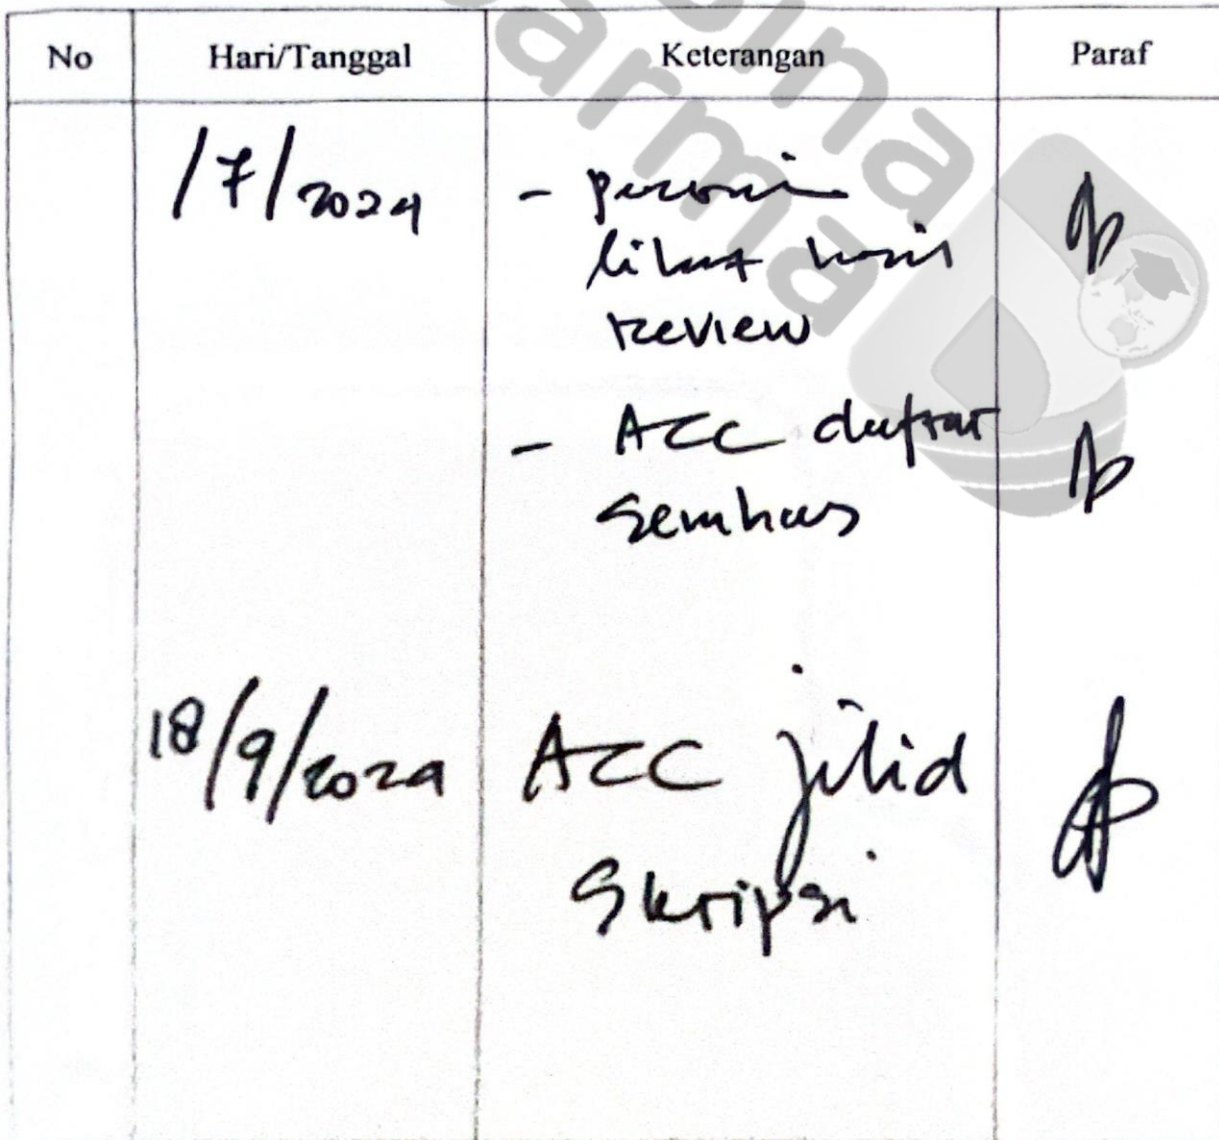 No Hari/Tanggal Keterangan Paraf
bina
darma
/7/2024 -
lihat hasil
review
- ACC daftar
Semhas
18/9/2024 ACC jilid
Skripsi